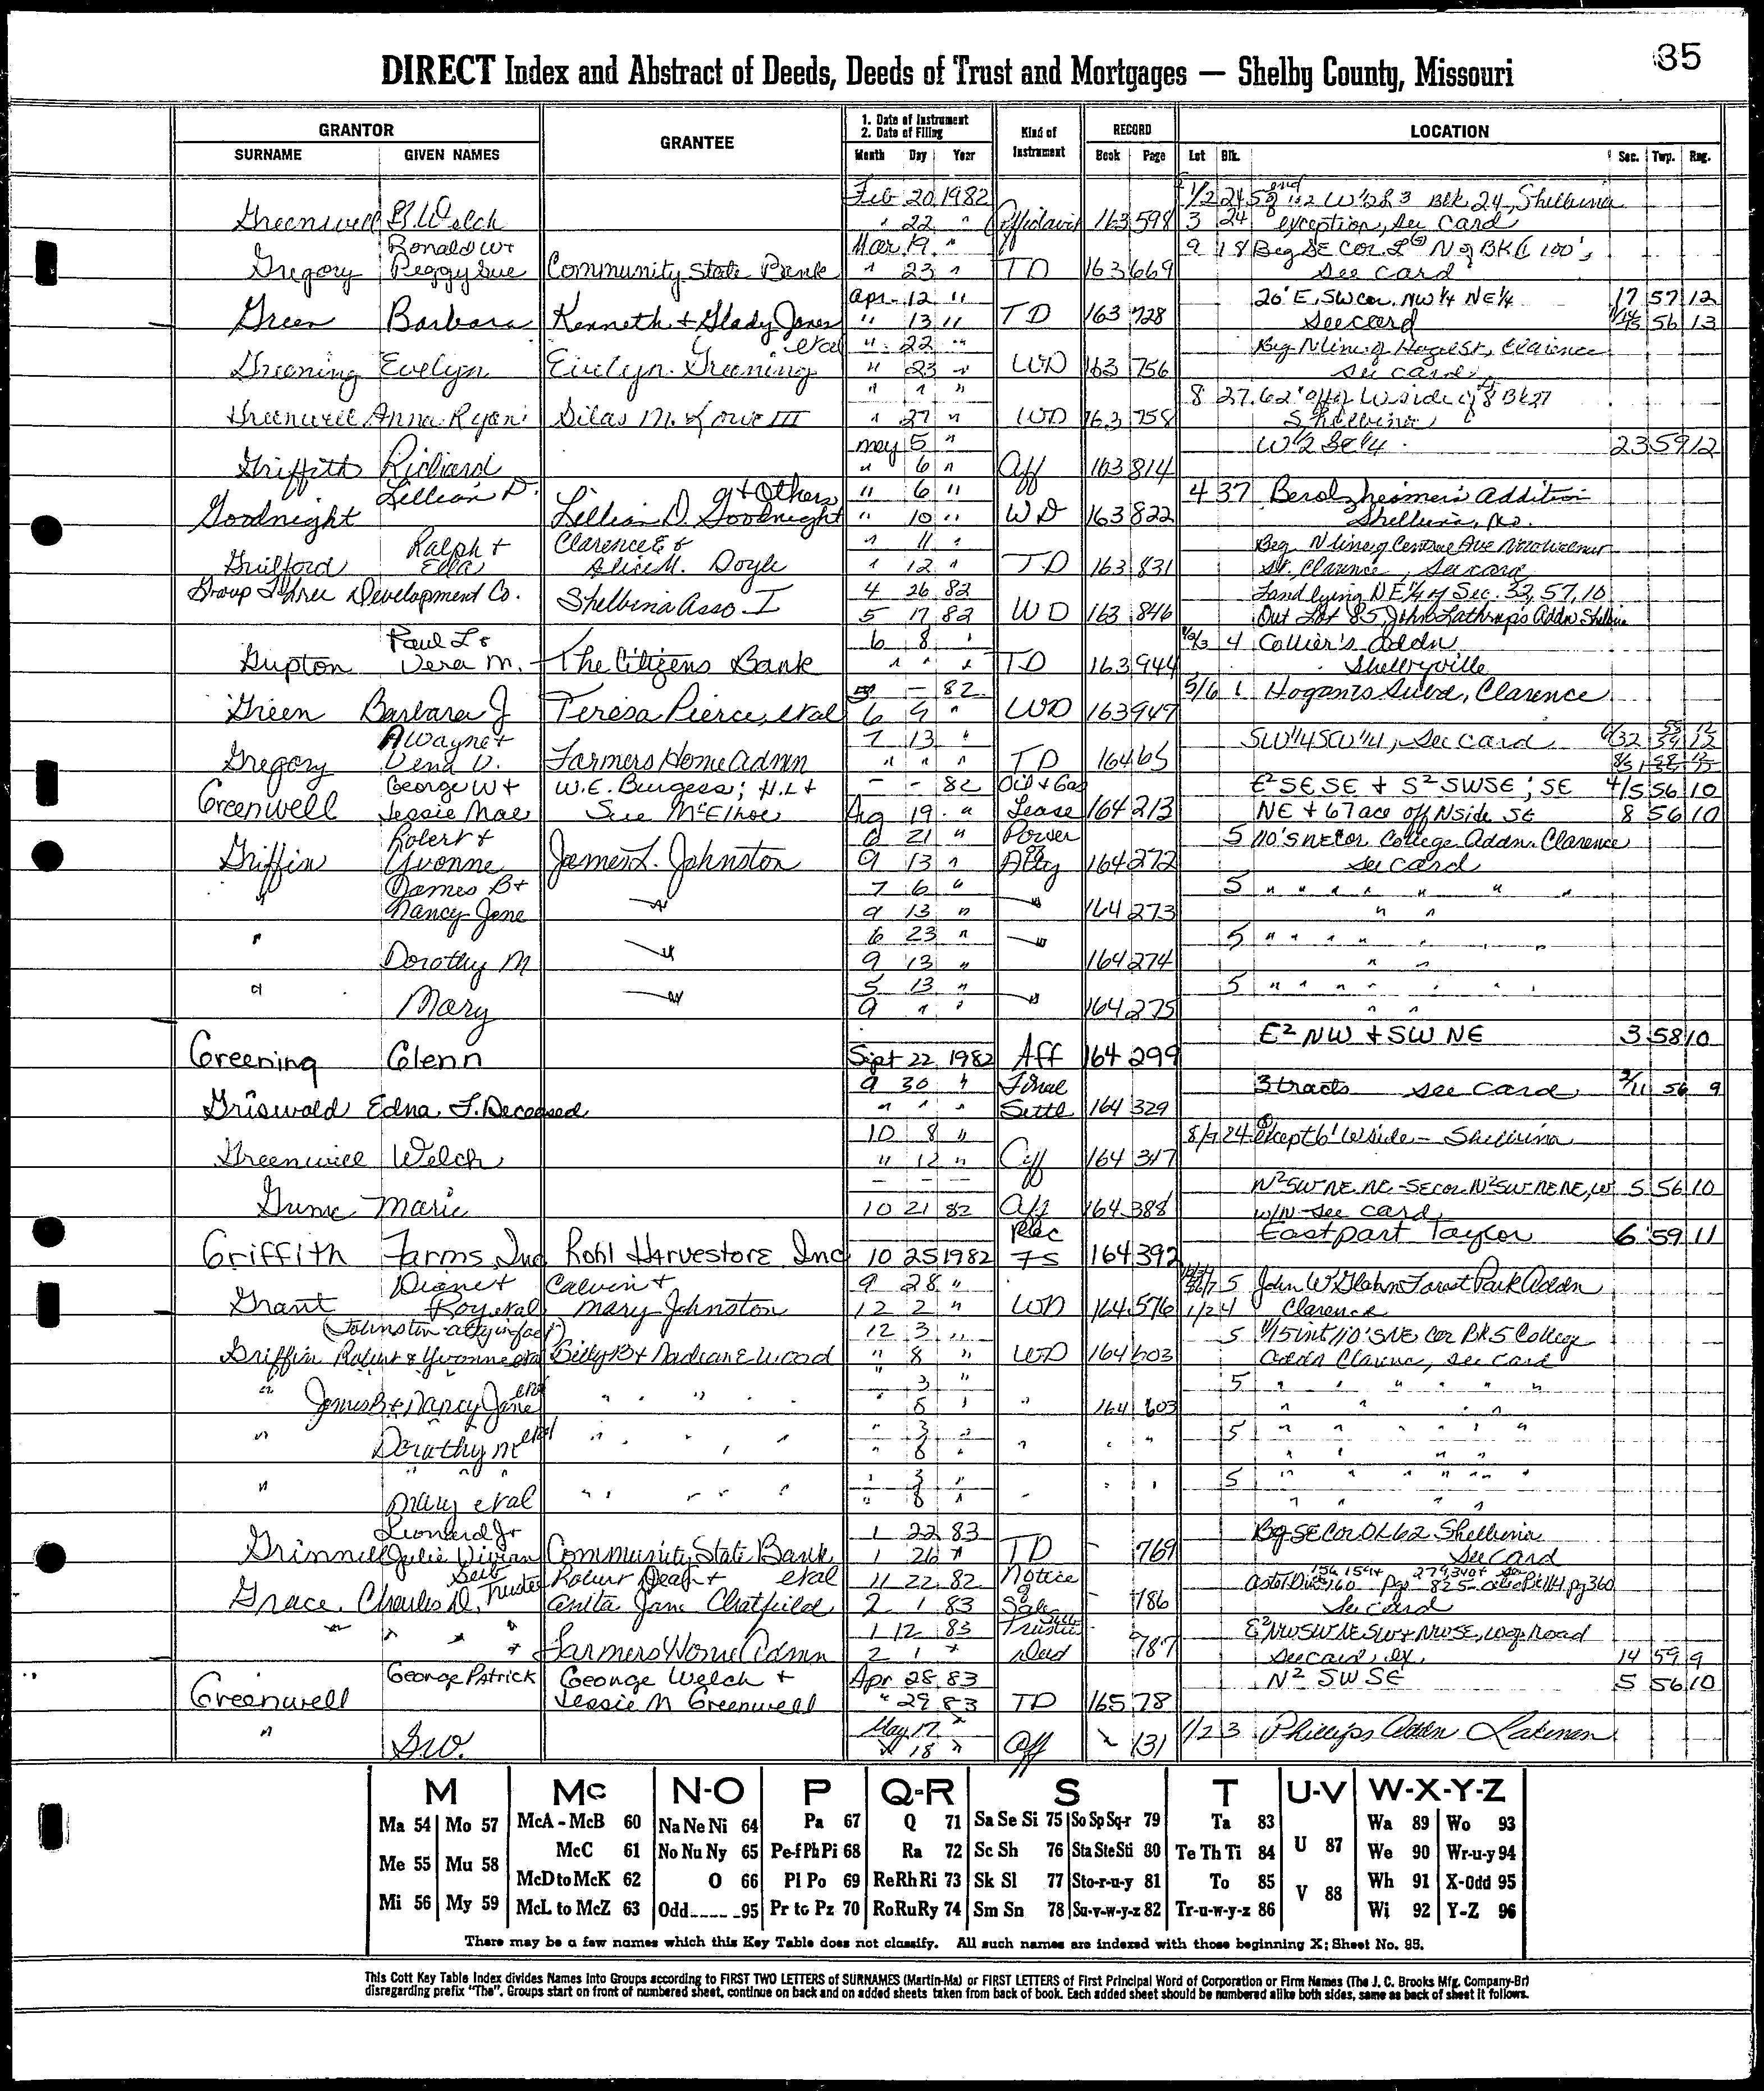 35
DIRECT Index and Abstract of Deeds, Deeds of Trust and Mortgages — Shelby County, Missouri
GRANTOR GRANTEE 1. Date of Instrument 2. Date of Filing Kind of Instrument RECORD LOCATION
SURNAME GIVEN NAMES Month Day Year Book Page Lot Blk. Sec. Twp. Rng.
Feb 20 1982 1/2 24 W 1/2 of 3 Blk 24, Shelbina
Greenwell G. Welch " 22 " Affidavit 163 598 3 24 exception, see card
Ronald W + Mar 19 " 9 18 Beg SE Cor. N of BK 100',
Gregory Peggy Sue Community State Bank " 23 " TD 163 669 see card
Apr 12 " 20' E, SW cor. NW 1/4 NE 1/4 17 57 12
Green Barbara Kenneth + Glady Jones " 13 " TD 163 728 see card 56 13
etal " 22 " Beg N line of Hagel St, Clarence
Greening Evelyn Evelyn Greening " 23 " WD 163 756 see card
" " " 8 27 .62' off W side of 8 Bk 27
Greenwell Anna Ryan Silas M. Lowe III " 27 " WD 163 758 Shelbina
May 5 " W 1/2 SE 1/4 23 59 12
Griffith Richard " 6 " Aff 163 814
Lillian D. + Others " 6 " 4 37 Berolzheimer's Addition
Goodnight Lillian D. Goodnight " 10 " WD 163 822 Shelbina, Mo.
Ralph + Clarence E + " 11 " Beg N line of Central Ave
Guilford Ella Alice M. Doyle " 12 " TD 163 831 St. Clarence, see card
Group Three Development Co. 4 26 82 Land lying NE 1/4 of Sec. 33, 57, 10
Shelbina Asso I 5 17 82 WD 163 846 Out Lot 85, John Lathrop's Addn Shelbina
Paul L + 6 8 " 4 Collier's Addn
Gupton Vera M. The Citizens Bank " " " TD 163 944 Shelbyville
— 82 5/6 1 Hogan's Subd, Clarence
Green Barbara J Teresa Pierce, etal 6 9 " WD 163 947
A Wayne + 7 13 " SW 1/4 SW 1/4, see card
Gregory Vena V. Farmers Home Admn " " " TD 164 65
George W + W.E. Burgess; H.L + - - 82 Oil + Gas E2 SE SE + S2 SW SE; SE 4/5 56 10
Greenwell Jessie Mae Sue McElroe Aug 19 " Lease 164 213 NE + 67 ace off N side SE 8 56 10
Robert + 6 21 " Power 5 110' S NE Cor College Addn. Clarence
Griffin Yvonne James L. Johnston 9 13 " Atty 164 272 see card
James B + 7 6 " 5 " " " " " " "
" Nancy Jane " 9 13 " " 164 273 " "
6 23 " 5 " " " " " "
" Dorothy M " 9 13 " " 164 274 " "
5 13 " 5 " " " " " "
" Mary " 9 " " " 164 275 " "
E2 NW + SW NE 3 58 10
Greening Glenn Sept 22 1982 Aff 164 299
9 30 " Final 3 tracts see card 2/11 56 9
Griswold Edna F. Deceased " " " Settl 164 329
10 8 " 8/9 24 Except 6' W side - Shelbina
Greenwell Welch " 12 " Aff 164 317
- - - N2 SW NE NE - SE cor N2 SW NE NE, W 5 56 10
Gume Marie 10 21 82 Aff 164 388 w/n - see card
Rec East part Taylor 6 59 11
Griffith Farms Inc Rohl Harvestore Inc 10 25 1982 FS 164 392
Diane + Calvin + 9 28 " 5 John W Glahn Forest Park Addn
Grant Roy etal Mary Johnston 12 2 " WD 164 576 1/2 4 Clarence
(Johnston atty in fact) 12 3 " 5 1/15 int 110' S NE Cor Bk 5 College
Griffin Robert & Yvonne etal Billy B + Nadean E Wood " 8 " WD 164 603 Addn Clarence, see card
etal " 3 " 5 " " " " " "
" James B + Nancy Jane " " " " " 8 " " 164 603 " " " "
etal " 3 " 5 " " " " " "
" Dorothy M " " " " " " 8 " " " " " " " "
" " " " 3 " 5 " " " " " "
" Mary etal " " " " " " 8 " " " " " " " "
Leonard J + 1 22 83 Bg SE Cor OL 62 Shelbina
Grinnell Julie Vivian Community State Bank 1 26 " TD - 769 see card
Robert Dean + etal 11 22 82 Notice
Grace, Charles D, Trustee Anita Jane Chatfield 2 1 83 Sale - 786 see card
1 12 83 Trustee E2 NW SW NE SW + NW SE, W of road
" " " " Farmers Home Admn 2 1 " Deed 787 see card, ex 14 59 9
George Patrick George Welch + Apr 28 83 N2 SW SE 5 56 10
Greenwell Jessie M Greenwell " 29 83 TD 165 78
May 17 " 1/2 3 Phillips Addn Lakenan
" G.W. " 18 " Aff " 131
M Mc N-O P Q-R S T U-V W-X-Y-Z
Ma 54 Mo 57 McA - McB 60 Na Ne Ni 64 Pa 67 Q 71 Sa Se Si 75 So Sp Sq-r 79 Ta 83 Wa 89 Wo 93
McC 61 No Nu Ny 65 Pe-f Ph Pi 68 Ra 72 Sc Sh 76 Sta Ste Sti 80 Te Th Ti 84 U 87 We 90 Wr-u-y 94
Me 55 Mu 58 McD to McK 62 O 66 Pl Po 69 Re Rh Ri 73 Sk Sl 77 Sto-r-u-y 81 To 85 Wh 91 X-Odd 95
Mi 56 My 59 McL to McZ 63 Odd 95 Pr to Pz 70 Ro Ru Ry 74 Sm Sn 78 Su-v-w-y-z 82 Tr-u-w-y-z 86 V 88 Wi 92 Y-Z 96
There may be a few names which this Key Table does not classify. All such names are indexed with those beginning X; Sheet No. 95.
This Cott Key Table Index divides Names into Groups according to FIRST TWO LETTERS of SURNAMES (Martin-Ma) or FIRST LETTERS of First Principal Word of Corporation or Firm Names (The J. C. Brooks Mfg. Company-Br)
disregarding prefix "The". Groups start on front of numbered sheet, continue on back and on added sheets taken from back of book. Each added sheet should be numbered alike both sides, same as back of sheet it follows.